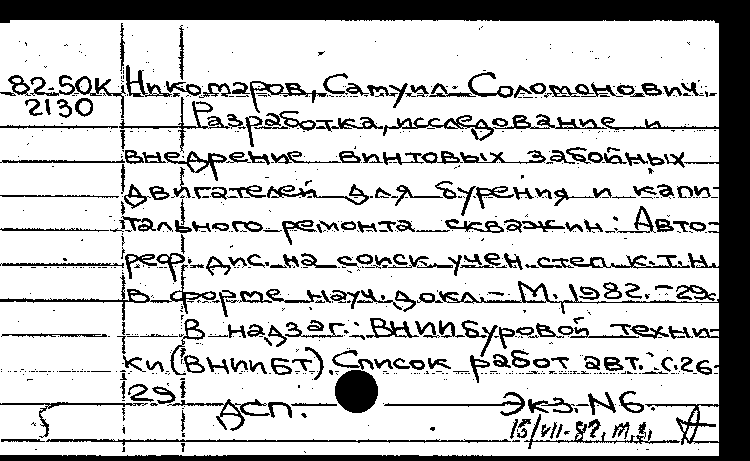 82-50К Никомаров, Самуил Соломонович.
2130 Разработка, исследование и
внедрение винтовых забойных
двигателей для бурения и капи-
тального ремонта скважин: Авто-
реф. дис. на соиск. учен. степ. к.т.н.
в форме науч. докл. - М., 1982. - 29с.
В надзаг.: ВНИИ буровой техни-
ки (ВНИИБТ). Список работ авт.: с.26-
29
ДСП. Экз. N6.
15/VII-82.